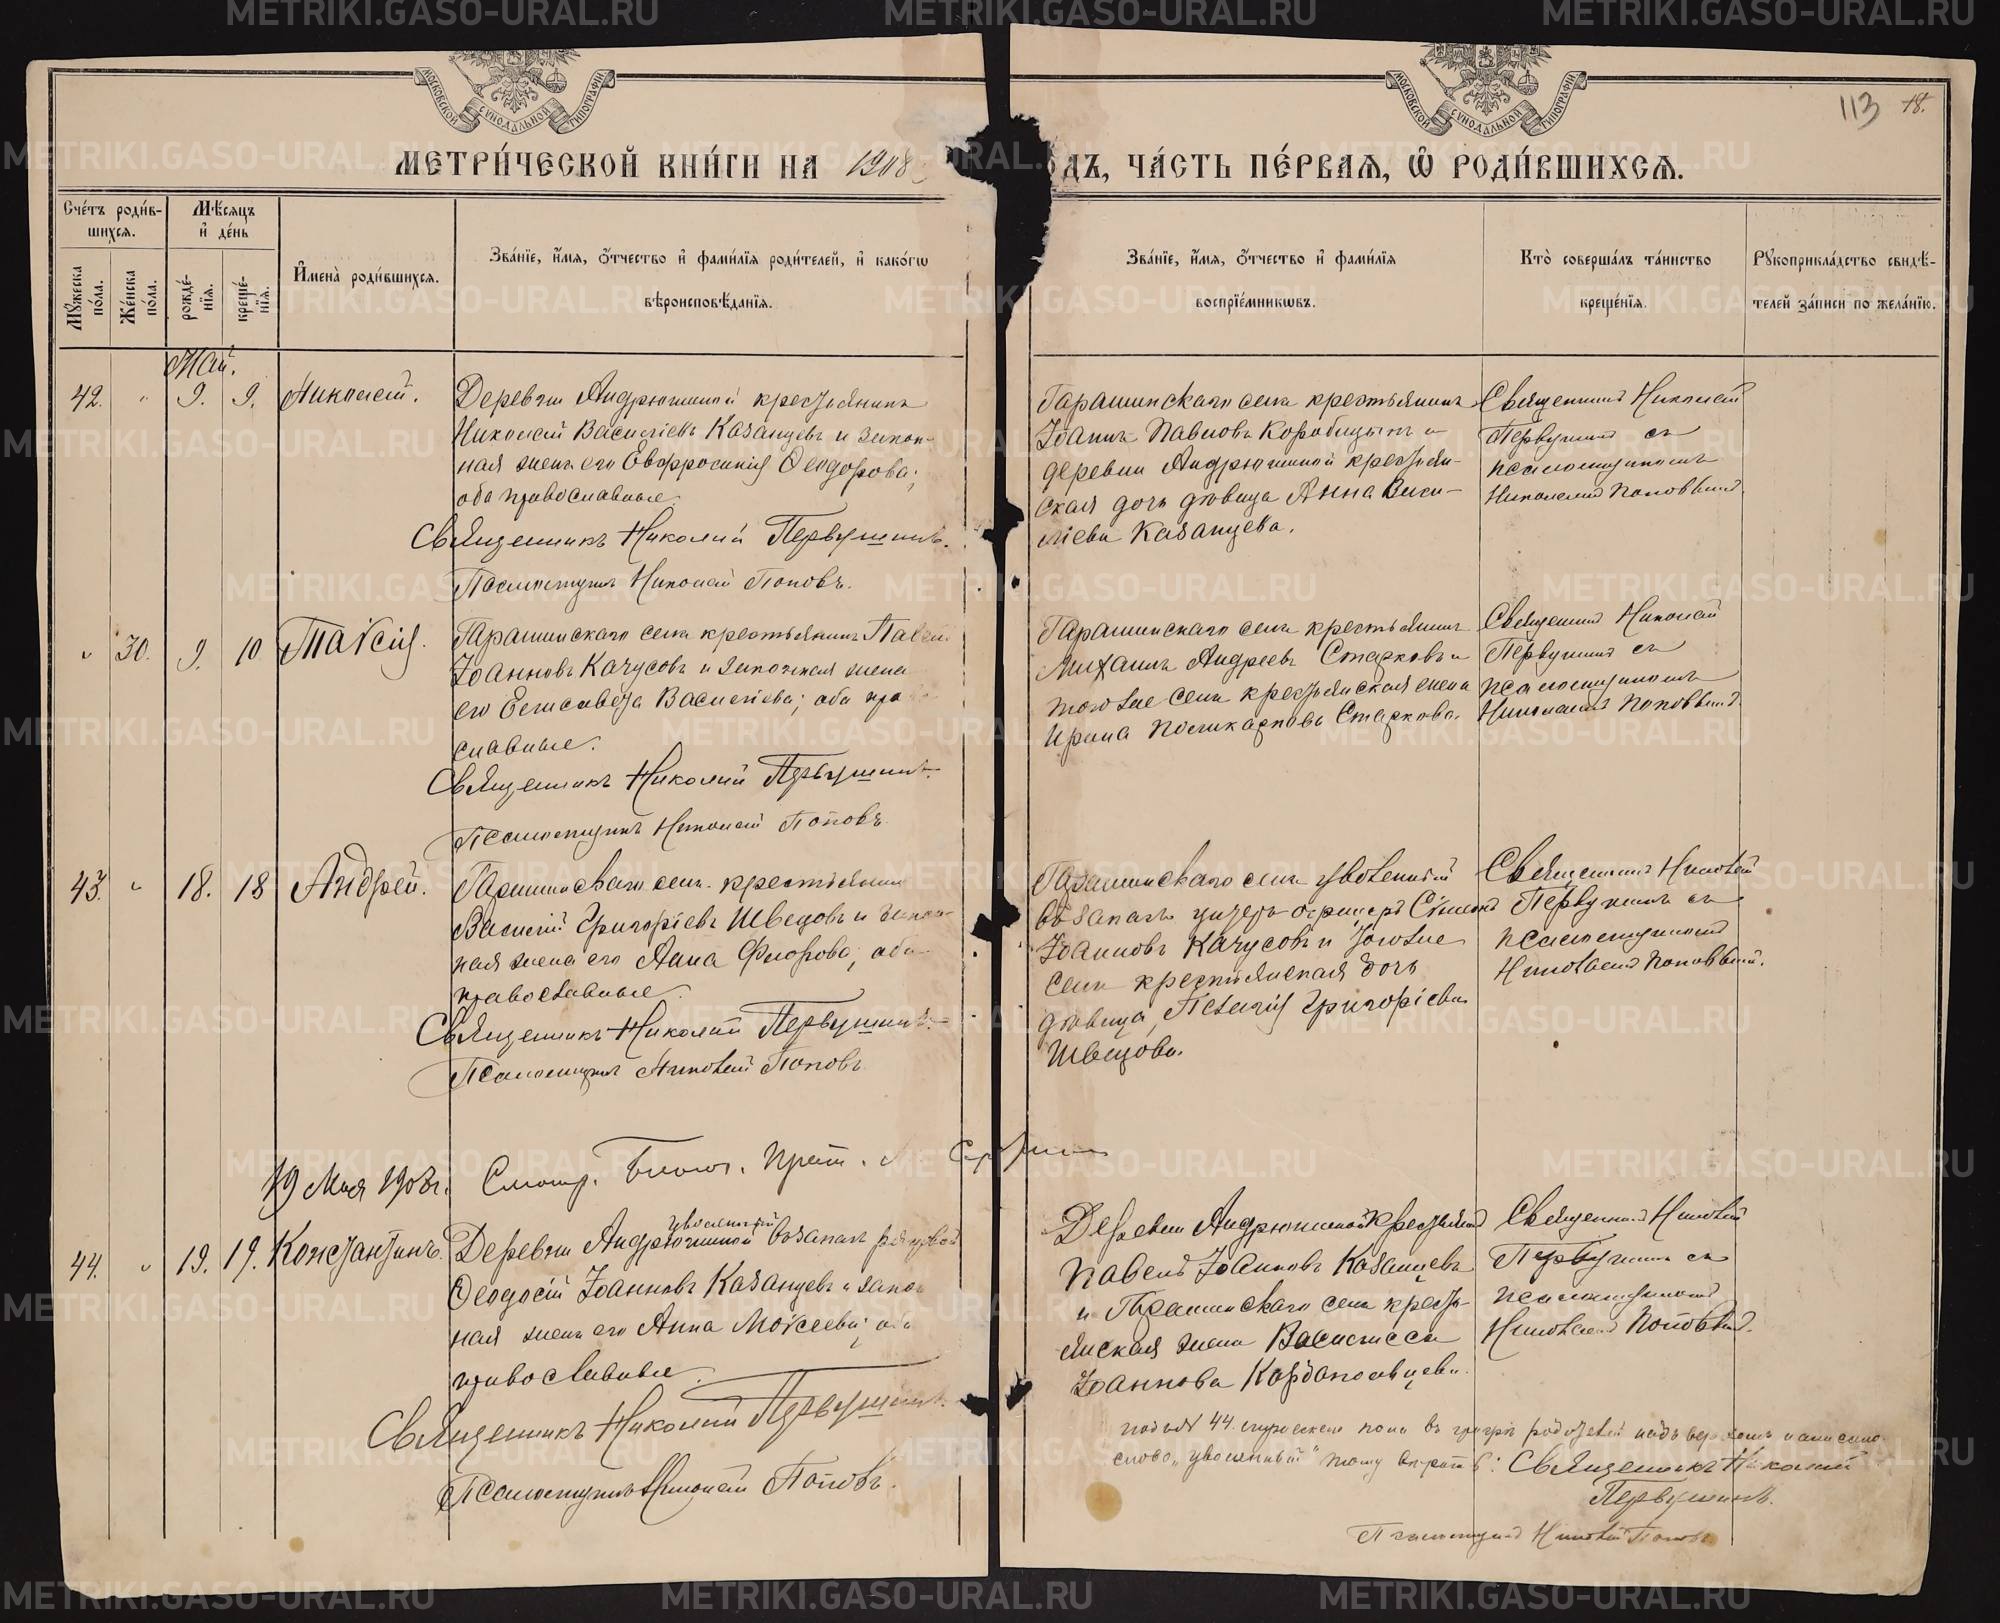 МЕТРИ́ЧЕСКОЙ КНИ́ГИ НА 1908
ОДЪ, ЧА́СТЬ ПЕ́РВАЯ, Ѽ РОДИ́ВШИХСЯ.
113 18.
Сче́тъ роди́в-
шихся.
Мѣ́сяцъ
и҆ де́нь
Мꙋ́жеска
по́ла.
Же́нска
по́ла.
рожде́-
нїя.
креще́-
нїя.
И҆мена̀ роди́вшихся.
Зва́нїе, и҆́мя, ѻ҆́тчество и҆ фами́лїя роди́телей, и҆ како́гѡ
вѣроисповѣ́данїя.
Зва́нїе, и҆́мя, ѻ҆́тчество и҆ фами́лїя
воспрїе́мникѡвъ.
Кто̀ соверша́лъ та́инство
креще́нїя.
Рꙋкоприкла́дство свидѣ́-
телей за́писи по жела́нїю.
Май.
42. " 9. 9. Николай.
Деревни Андрюшиной крестьянинъ
Николай Василіевъ Казанцевъ и закон-
ная жена его Евфросинія Ѳеодорова;
оба православные
Священникъ Николай Первушинъ.
Псаломщикъ Николай Поповъ.
Гарашинскаго села крестьянинъ
Іоаннъ Павловъ Коробицынъ и
деревни Андрюшиной крестьян-
ская дочь дѣвица Анна Васи-
ліева Казанцева.
Священникъ Николай
Первушинъ съ
псаломщикомъ
Николаемъ Поповымъ.
" 30. 9. 10 Таисія.
Гарашинскаго села крестьянинъ Павелъ
Іоанновъ Качусовъ и законная жена
его Елисавета Василіева; оба право
славные.
Священникъ Николай Первушинъ.
Псаломщикъ Николай Поповъ.
Гарашинскаго села крестьянинъ
Михаилъ Андреевъ Старковъ и
того же села крестьянская жена
Ирина Поликарпова Старкова.
Священникъ Николай
Первушинъ съ
псаломщикомъ
Николаемъ Поповымъ.
43. " 18. 18 Андрей.
Гарашинскаго села крестьянинъ
Василій Григоріевъ Швецовъ и закон-
ная жена его Анна Флорова; оба
православные.
Священникъ Николай Первушинъ.
Псаломщикъ Николай Поповъ.
Гарашинскаго села уволенный
въ запасъ унтеръ-офицеръ Симеонъ
Іоанновъ Качусовъ и того же
села крестьянская дочь
дѣвица Пелагія Григоріева
Швецова.
Священникъ Николай
Первушинъ съ
псаломщикомъ
Николаемъ Поповымъ.
19 Мая 1908 г. Смотр. Благоч. Прот.
44. " 19. 19. Константинъ.
уволенный
Деревни Андрюшиной въ запасъ рядовой
Ѳеодосій Іоанновъ Казанцевъ и закон
ная жена его Анна Моисеева; оба
православные.
Священникъ Николай Первушинъ.
Псаломщикъ Николай Поповъ.
Деревни Андрюшиной крестьянинъ
Павелъ Іоанновъ Казанцевъ
и Гарашинскаго села кресть-
янская жена Василисса
Іоаннова
Священникъ Николай
Первушинъ съ
псаломщикомъ
Николаемъ Поповымъ.
подъ № 44. мужескаго пола въ графѣ родителей надъ верхомъ написано
слово "уволенный" тому вѣрить: Священникъ Николай
Первушинъ.
Псаломщикъ Николай Поповъ
METRIKI.GASO-URAL.RU